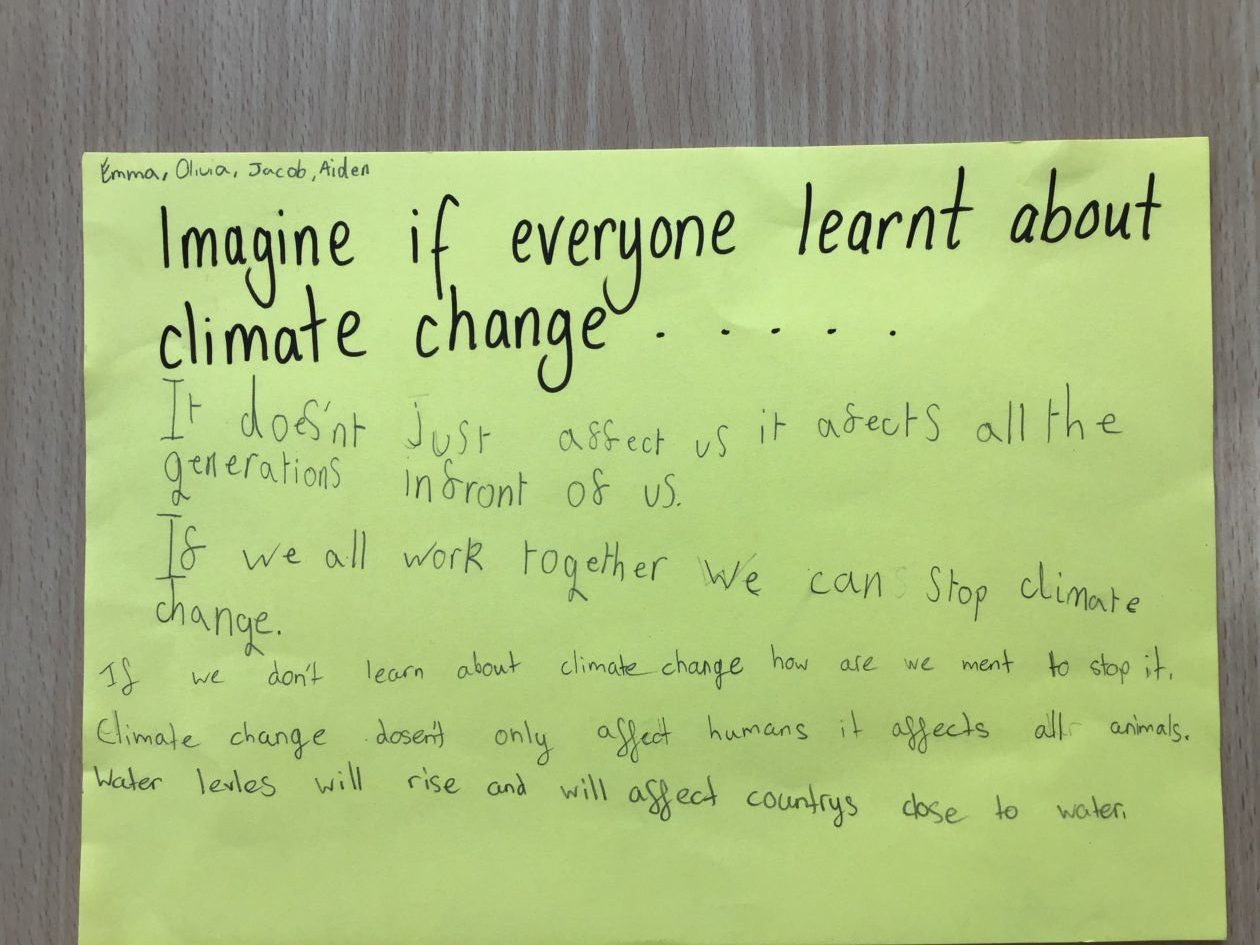 Emma, Olivia, Jacob, Aiden
Imagine if everyone learnt about
climate change . . . . .
It does'nt just affect us it afects all the
generations infront of us.
If we all work together we can stop climate
change.
If we don't learn about climate change how are we ment to stop it.
Climate change dosen't only affect humans it affects all animals.
Water levles will rise and will affect countrys close to water.